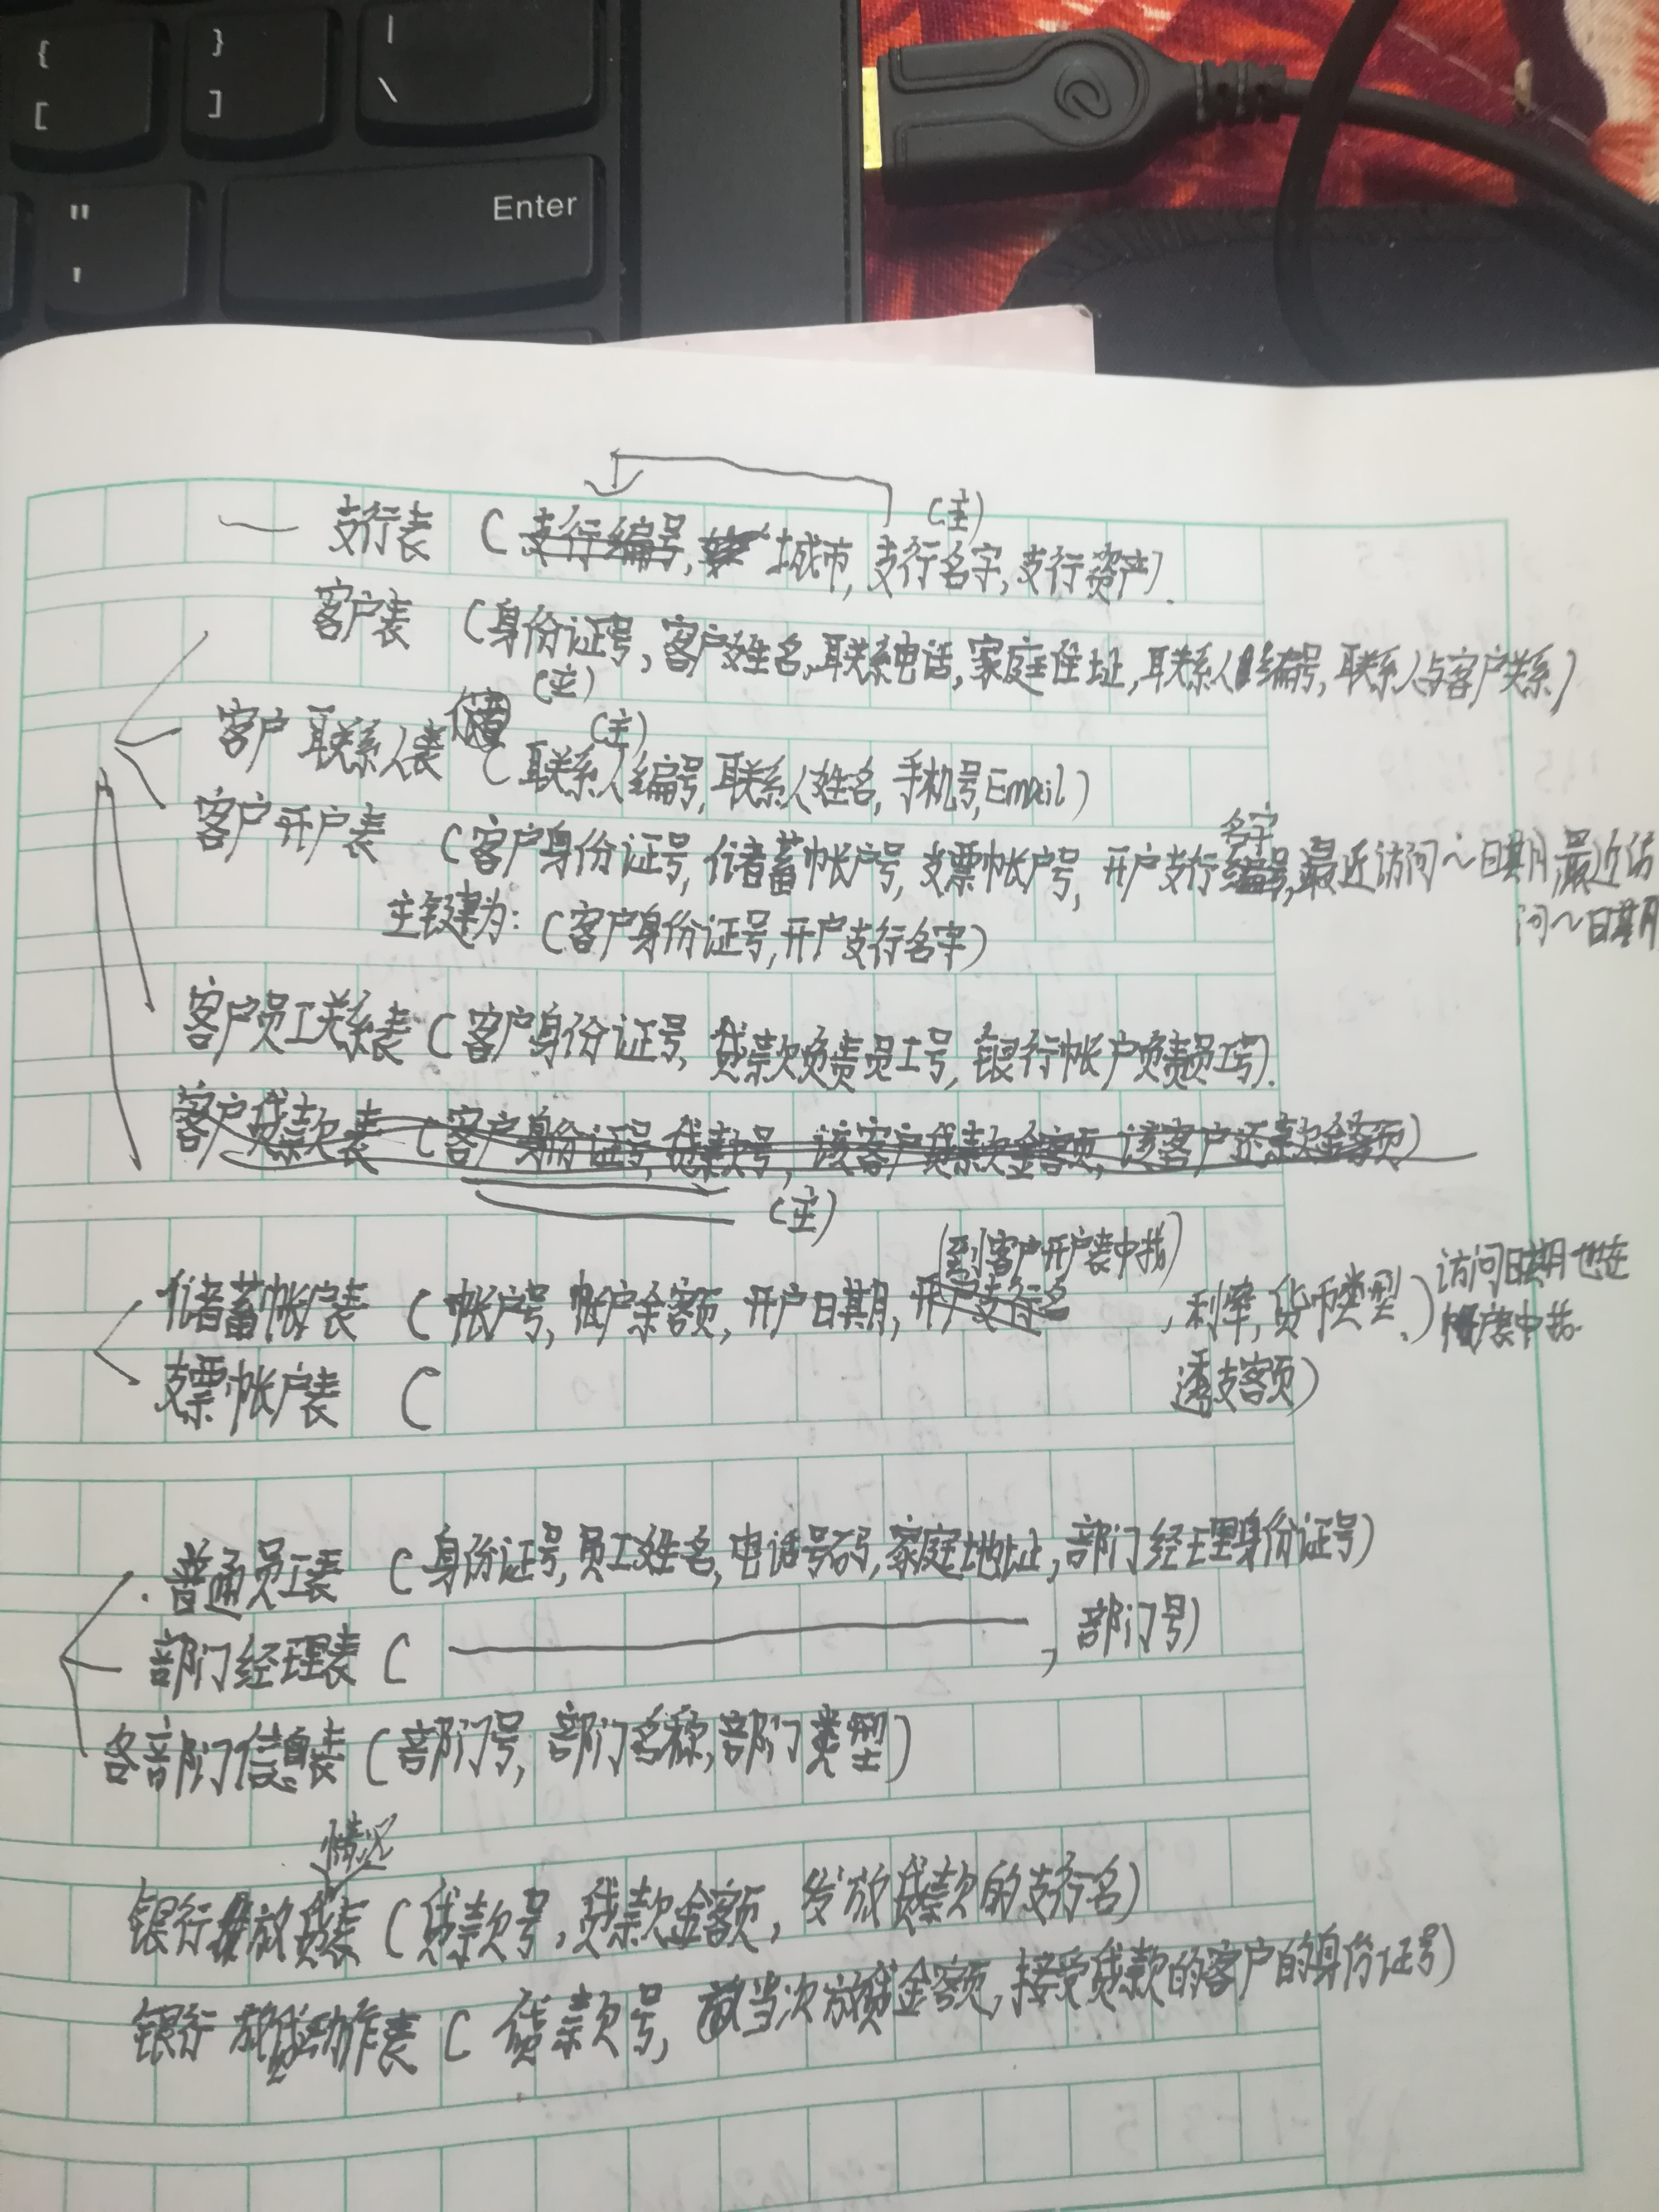 {
[
}
]
|
\
"
'
Enter
(主)
支行表 (支行编号, 城市, 支行名字, 支行资产).
客户表 (身份证号, 客户姓名, 联系电话, 家庭住址, 联系人编号, 联系人与客户关系)
(主)
(主)
客户联系人表 (联系人编号, 联系人姓名, 手机号, Email)
名字
客户开户表 (客户身份证号, 储蓄帐户号, 支票帐户号, 开户支行编号, 最近访问~日期, 最近访
问~日期
主键为: (客户身份证号, 开户支行名字)
客户员工关系表 (客户身份证号, 贷款负责员工号, 银行帐户负责员工号).
客户贷款表 (客户身份证号, 贷款号, 该客户贷款金额, 该客户还款金额)
(主)
(到客户开户表中找)
储蓄帐户表 (帐户号, 帐户余额, 开户日期, 开户支行名, 利率, 货币类型.) 访问日期也在
户表中找.
支票帐户表 ( 透支额)
普通员工表 (身份证号, 员工姓名, 电话号码, 家庭地址, 部门经理身份证号)
部门经理表 ( , 部门号)
各部门信息表 (部门号, 部门名称, 部门类型)
情况
银行放贷表 (贷款号, 贷款金额, 发放贷款的支行名)
银行放贷动作表 (贷款号, 当次放贷金额, 接受贷款的客户的身份证号)